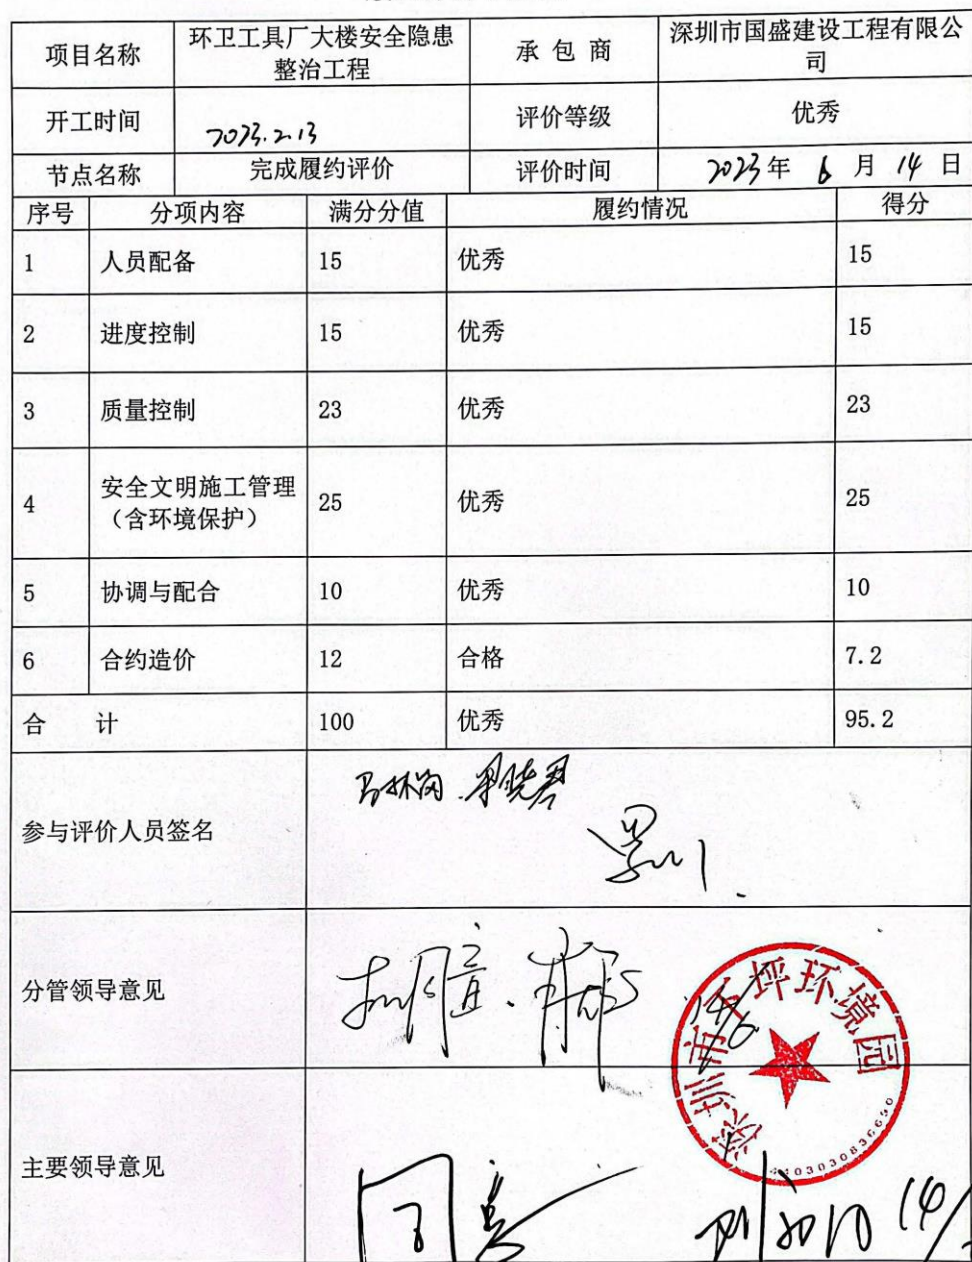 项目名称 环卫工具厂大楼安全隐患 承 包 商 深圳市国盛建设工程有限公
整治工程 司
开工时间 2023.2.13 评价等级 优秀
节点名称 完成履约评价 评价时间 2023年 6 月 14 日
序号 分项内容 满分分值 履约情况 得分
1 人员配备 15 优秀 15
2 进度控制 15 优秀 15
3 质量控制 23 优秀 23
4 安全文明施工管理 25 优秀 25
（含环境保护）
5 协调与配合 10 优秀 10
6 合约造价 12 合格 7.2
合 计 100 优秀 95.2
参与评价人员签名
分管领导意见 同意
深圳市下坪环境园
主要领导意见 同意